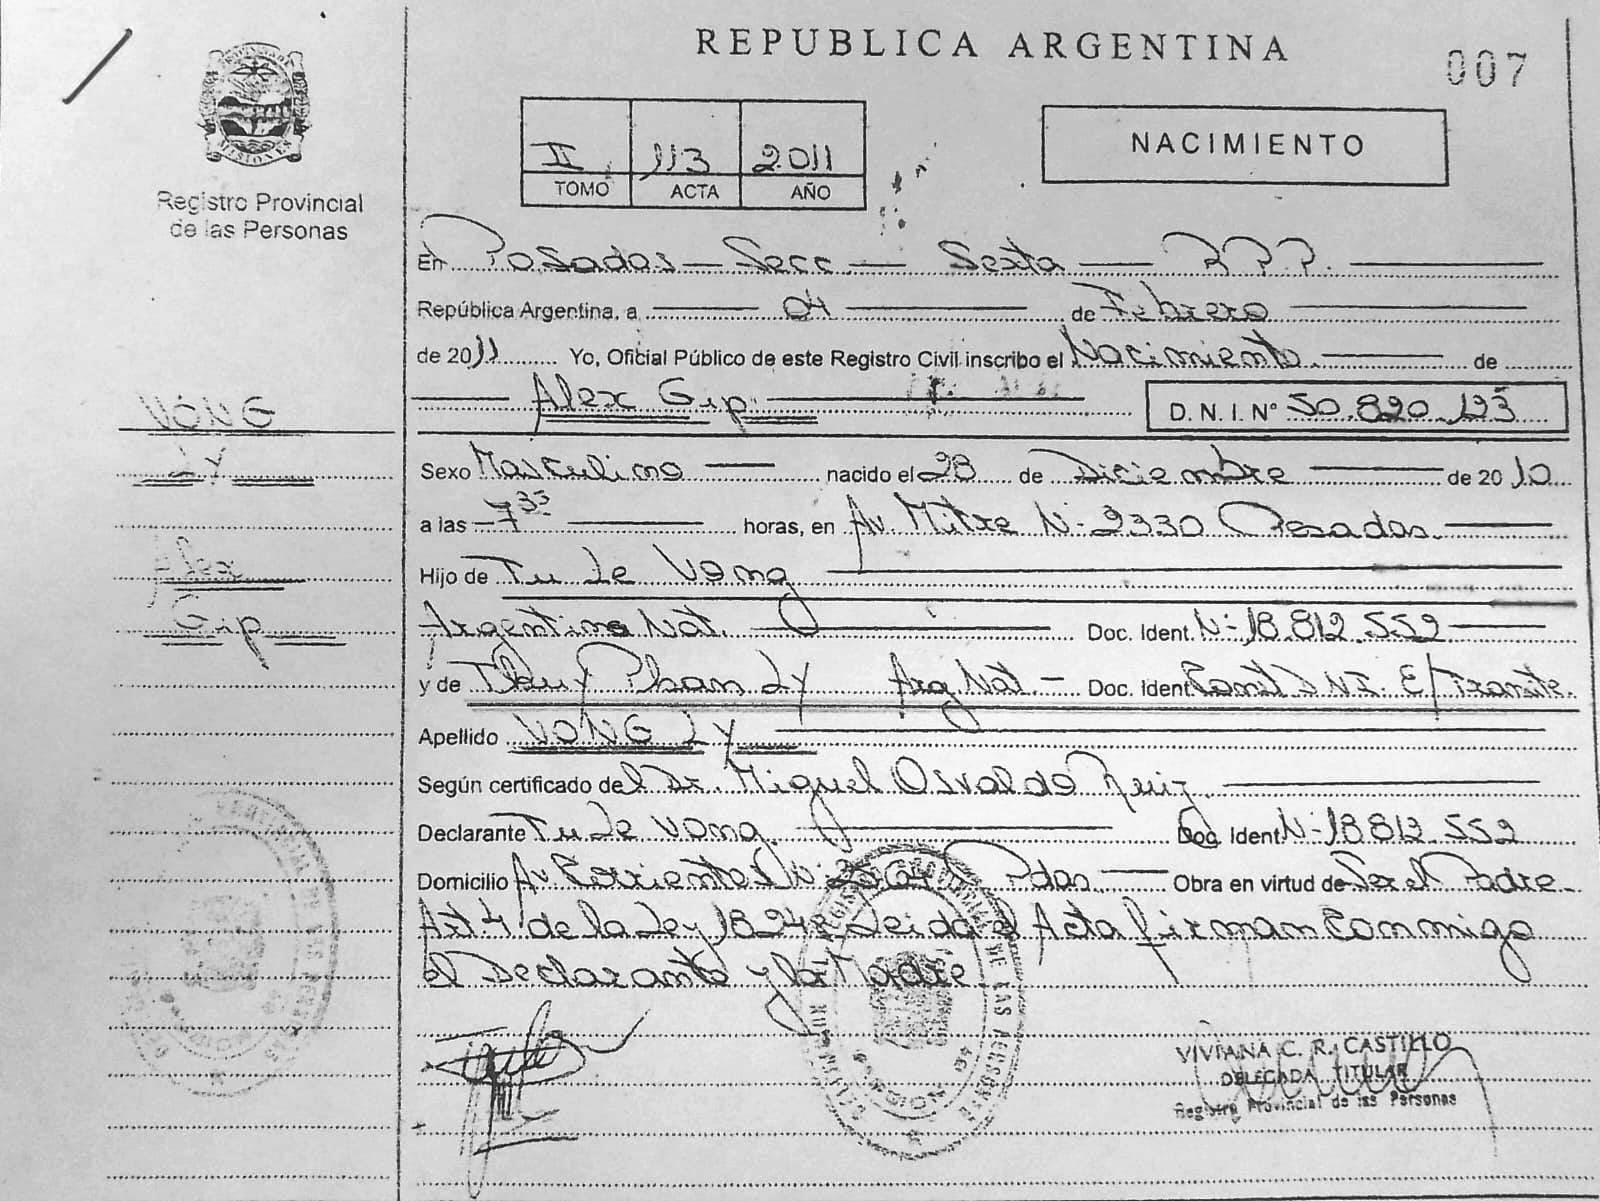 REPUBLICA ARGENTINA
007
MISIONES
Registro Provincial
de las Personas
II 113 2011
TOMO ACTA AÑO
NACIMIENTO
En Posadas - Secc - Sexta - R.P.P.
República Argentina, a 04 de Febrero
de 2011 Yo, Oficial Público de este Registro Civil inscribo el Nacimiento. de
Alex Gip. D.N.I. Nº 50.820.123
VONG
LY
Alex
Gip
Sexo Masculino nacido el 28 de Diciembre de 2010
a las 7 35 horas, en Av. Mitre N- 2330 Posadas.
Hijo de Tu Le Vong
Argentino Nat. Doc. Ident. N- 18.812.552
y de Thuy Phan Ly Arg Nat. - Doc. Ident D.N.I. E/Tramite.
Apellido VONG LY
Según certificado del Dr. Miguel Osvaldo Ruiz.
Declarante Tu Le Vong. Doc. Ident. N- 18.812.552
Domicilio Av Corrientes N- Pdas. Obra en virtud de Ser el Padre
Art 4 de la Ley 18248 Leida el Acta firman Conmigo
el Declarante y la Madre
VIVIANA C. R. CASTILLO
DELEGADA TITULAR
Registro Provincial de las Personas